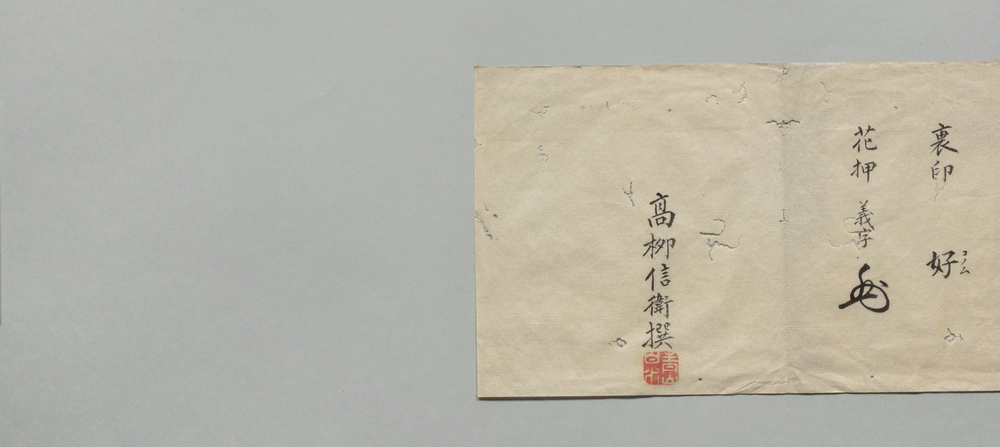 裏印
好コノム
花押
義字
高柳信衛撰